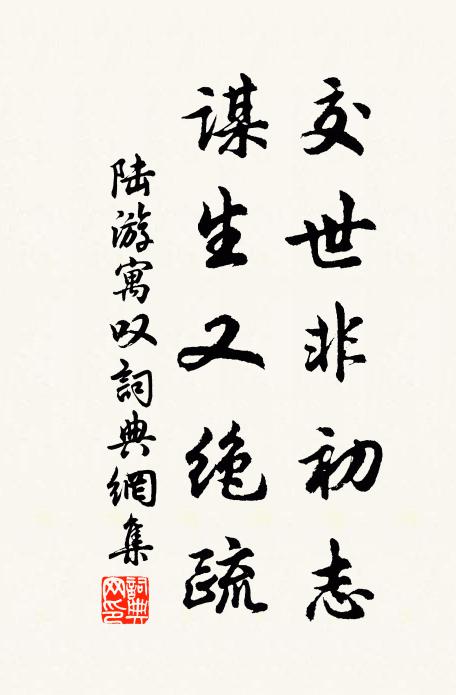 交世非初志
謀生又絶疏
陆游寓叹詞典網集
詞典網印